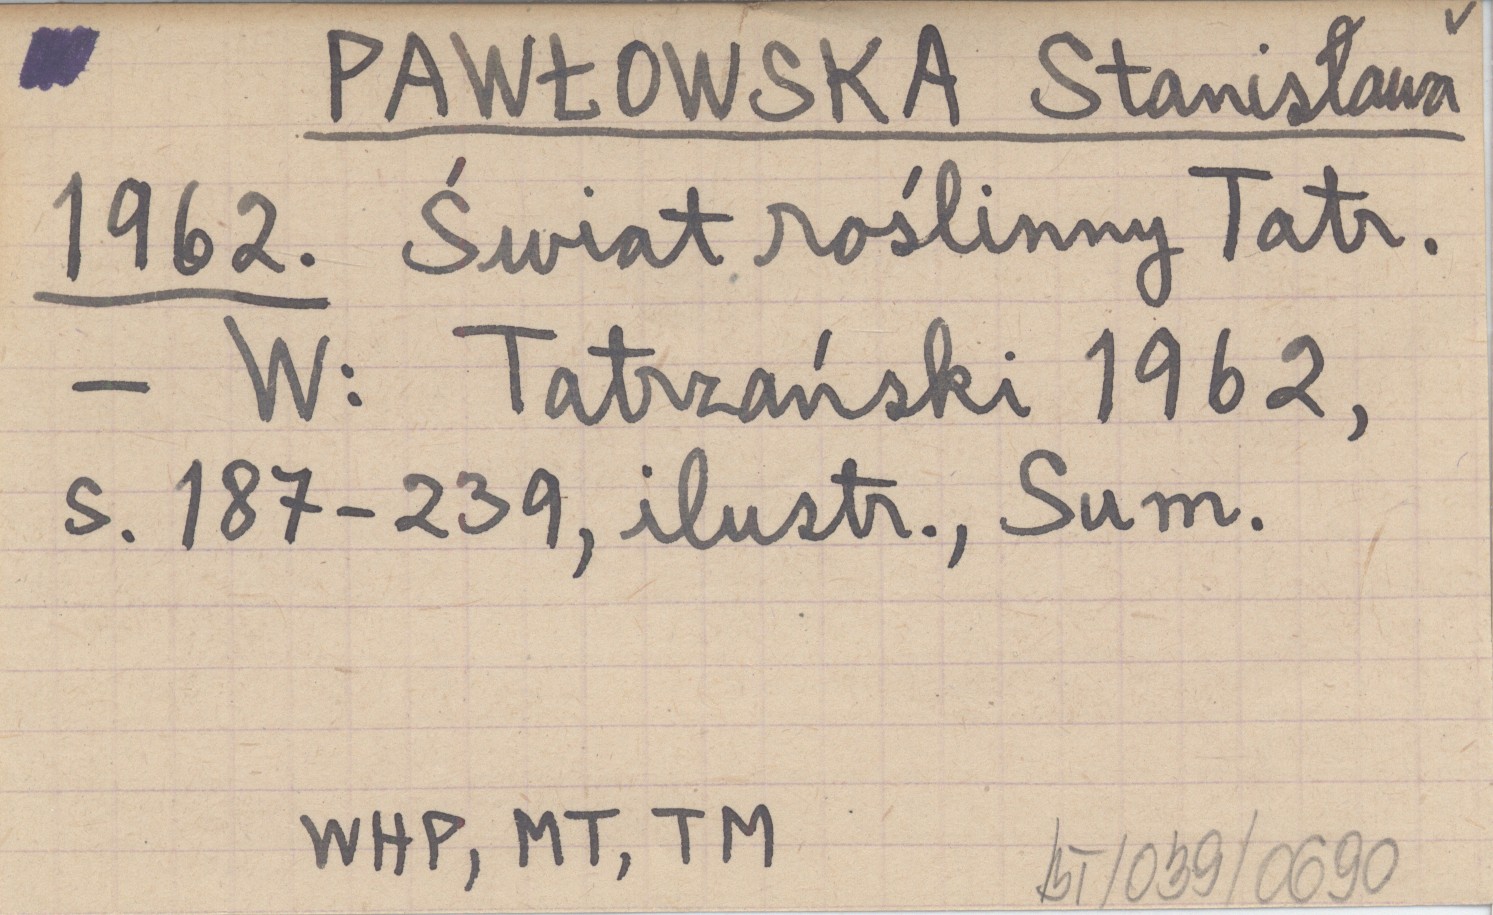 PAWŁOWSKA Stanisława
1962. Świat roślinny Tatr.
– W: Tatrzański 1962,
s. 187–239, ilustr., Sum.
WHP, MT, TM
BT/039/0690